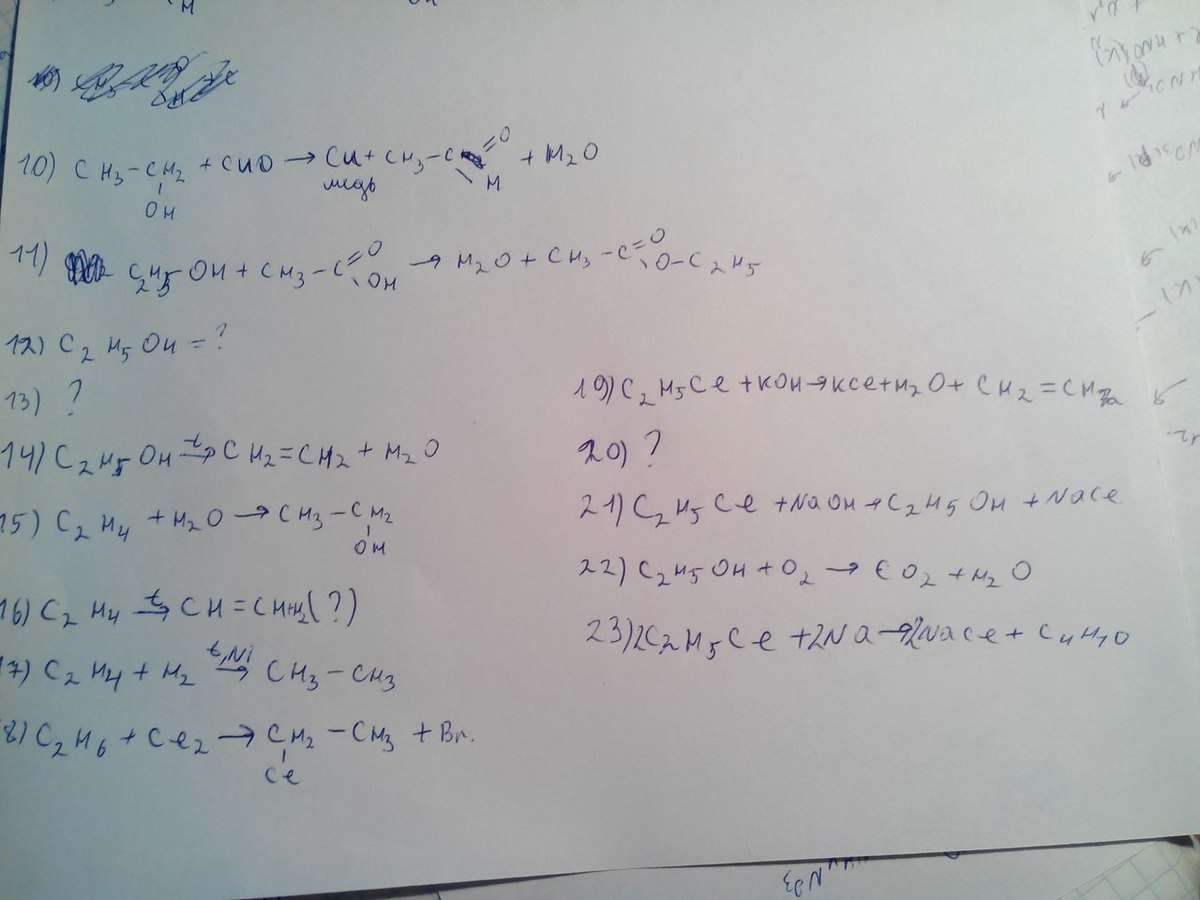 10) CH3-CH2 + CuO → Cu + CH3-C =O + H2O
OH медь H
11) C2H5-OH + CH3-C =O OH → H2O + CH3-C =O O-C2H5
12) C2H5OH = ?
13) ?
14) C2H5OH t→ CH2=CH2 + H2O
15) C2H4 + H2O → CH3-CH2
OH
16) C2H4 t→ CH=CH+H2(?)
17) C2H4 + H2 t,Ni→ CH3-CH3
18) C2H6 + Cl2 → CH2-CH3 + Br.
Cl
19) C2H5Cl + KOH → KCl + H2O + CH2=CH2
20) ?
21) C2H5Cl + NaOH → C2H5OH + NaCl
22) C2H5OH + O2 → CO2 + H2O
23) 2C2H5Cl + 2Na → 2NaCl + C4H10
NO3